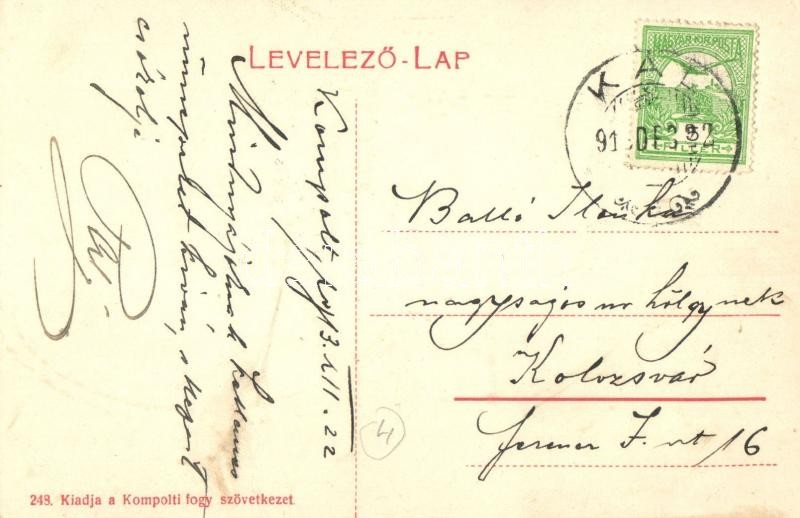 LEVELEZŐ-LAP
MAGYAR·KIR·POSTA
FILLÉR
KÁL
913 DEC 22
Kompolt, 913. XII. 22
Mindnyájuknak kellemes
ünnepeket kíván, s kezeit
csókolja
Pali
Balló Ilonka
nagyságos úr hölgynek
Kolozsvár
Ferenc J. út 16
4
248. Kiadja a Kompolti fogy szövetkezet.